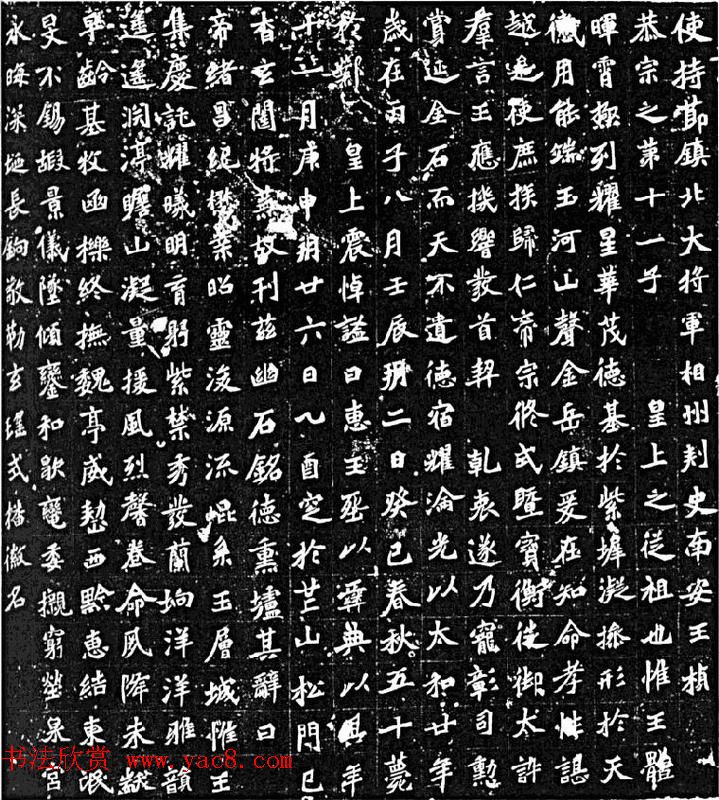 使持節鎮北大將軍相州刺史南安王楨
恭宗之第十一子 皇上之從祖也惟王體
暉霄極列耀星華茂德基於紫墀凝操形於天
感用能端玉河山聲金岳鎮爰在知命孝性諶
越是使庶族歸仁帝宗攸式暨寶衡徙御太訏
羣言王應機響發首契 乾衷遂乃寵彰司勳
賞延金石而天不遺德宿耀淪光以太和廿年
歲在丙子八月壬辰朔二日癸巳春秋五十薨
於鄴 皇上震悼謚曰惠王葬以彝典以其年
十一月庚申朔廿六日乙酉窆於芒山松門已
杳玄闥將蕪故刊茲幽石銘德熏壚其辭曰
帝緒昌紀懋業昭靈浚源流崐系玉層城惟王
集慶託耀曦明育躬紫禁秀發蘭坰洋洋雅韻
遙遙淵渟瞻山凝量援風烈馨卷命夙降未黻
早齡基牧函櫟終撫魏亭威整西黔惠結東氓
旻不錫嘏景儀墜傾鑾和歇轙委櫬窮塋泉宮
永晦深埏長鉤敬勒玄瑤式播徽名
书法欣赏 www.yac8.com